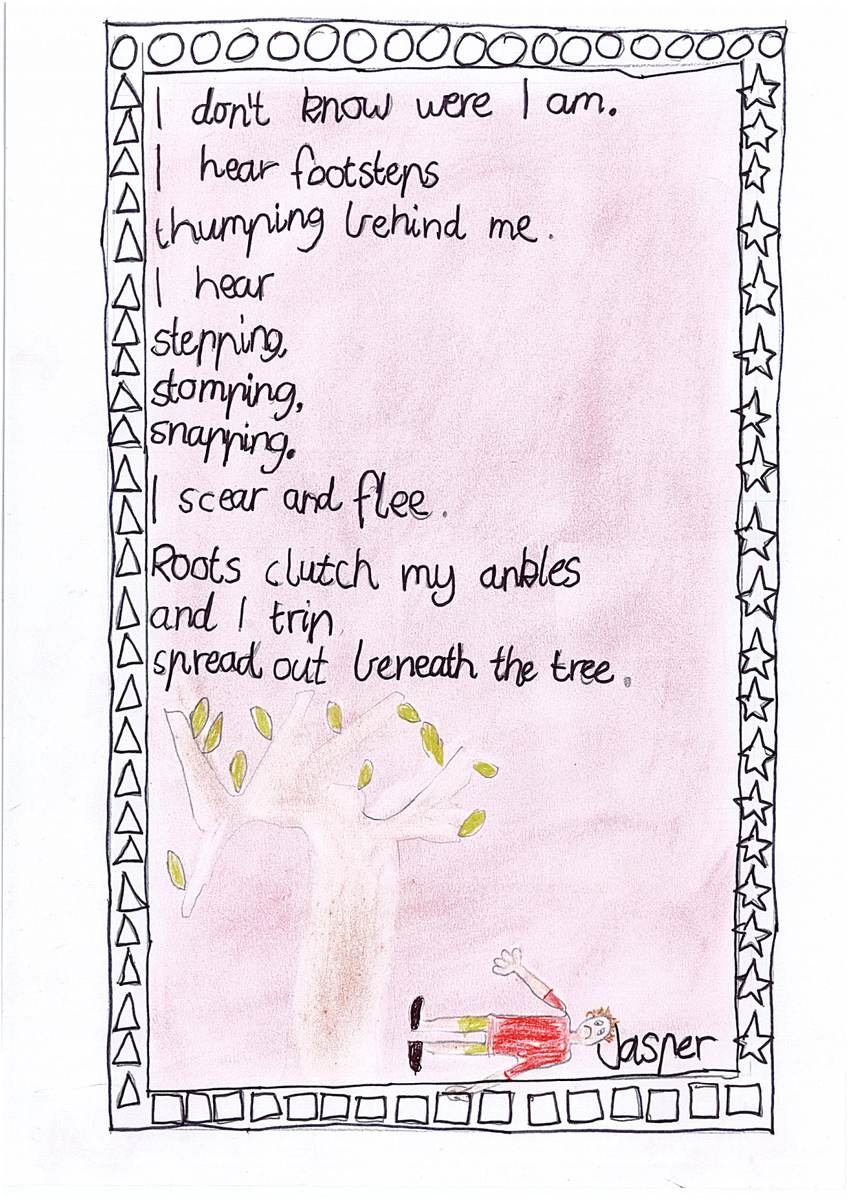 I don't know were I am.
I hear footsteps
thumping behind me.
I hear
stepping,
stomping,
snapping.
I scear and flee.
Roots clutch my ankles
and I trip
spread out beneath the tree.
Jasper